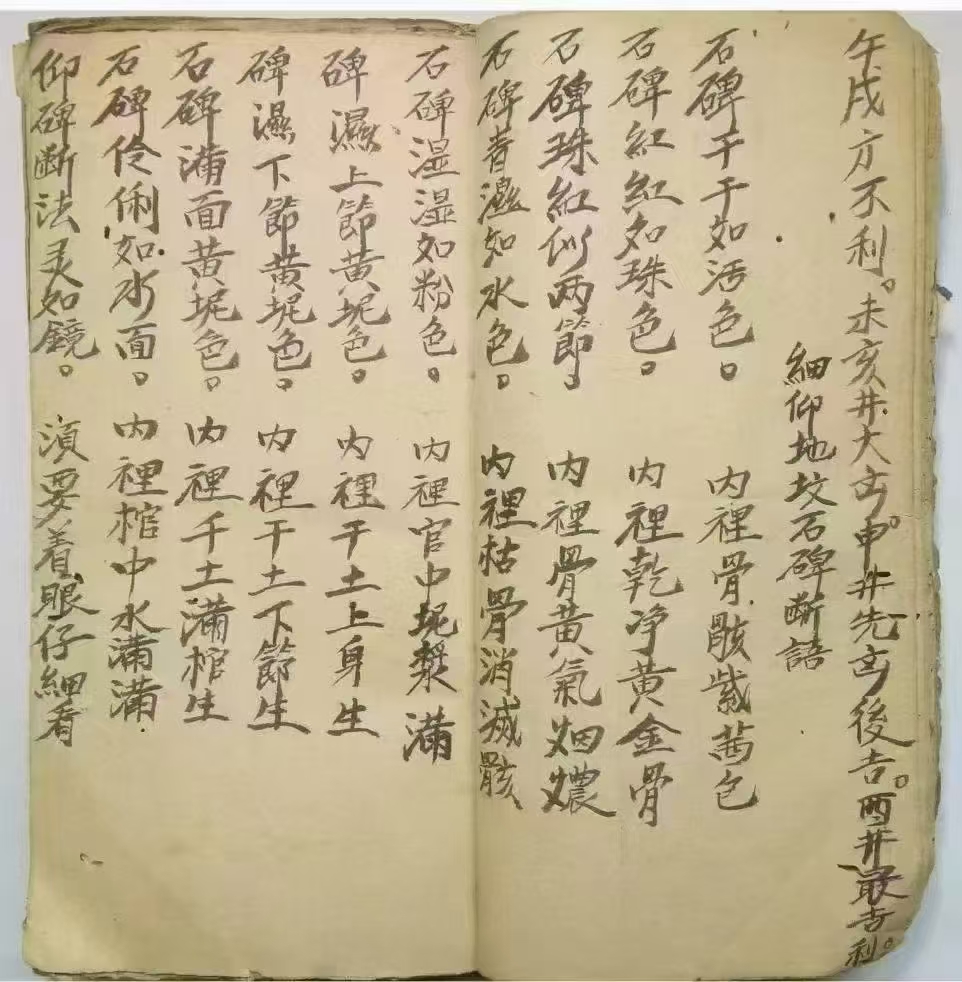 午戌方不利。未亥井大凶。申井先凶後吉。酉井最吉利。
細仰地坟石碑断語
石碑干干如活色。内裡骨骸紫茜色
石碑紅紅如珠色。内裡乾净黄金骨
石碑珠紅似两節。内裡骨黄氣烟濃
石碑者濕如水色。内裡枯骨消滅骸
石碑湿湿如粉色。内裡官中坭漿滿
碑濕上節黄坭色。内裡干土上身生
碑濕下節黄坭色。内裡干土下節生
石碑满面黄坭色。内裡千土满棺生
石碑伶俐如水面。内裡棺中水滿滿
仰碑断法灵如鏡。須要着眼仔細看